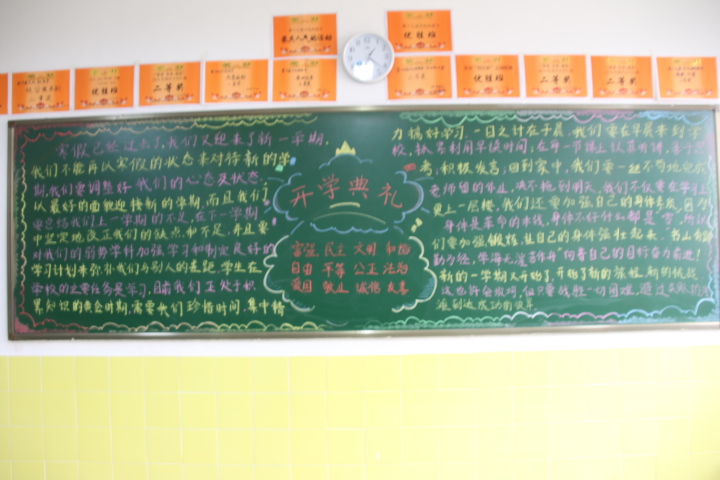 最美人气班活动
优胜班
优胜班
二等奖
二等奖
优胜班
二等奖
二等奖
寒假已经过去了,我们又迎来了新一学期,
我们不能再以寒假的状态来对待新的学
期,我们要调整好我们的心态及状态,
以最好的面貌迎接新的学期,而且我们
要总结我们上一学期的不足,在下一学期
中坚定地改正我们的缺点和不足,并且要
对我们的弱势学科加强学习和制定良好的
学习计划来弥补我们与别人的差距,学生在
学校的主要任务是学习,目前我们正处于积
累知识的黄金时期,需要我们珍惜时间,集中精
开学典礼
富强 民主 文明 和谐
自由 平等 公正 法治
爱国 敬业 诚信 友善
力搞好学习,一日之计在于晨,我们要在早晨来到学
校,抓紧利用早读时间,在每一节课上认真听讲,善于思
考,积极发言,回到家中,我们要一丝不苟地完成
老师留的作业,决不拖到明天,我们不仅要在学习上
更上一层楼,我们还要加强自己的身体素质,因为
身体是革命的本钱,身体不好什么都是"零",所以
们要加强锻炼,让自己的身体强壮起来,书山有路
勤为径,学海无涯苦作舟,向着自己的目标奋力前进!
新的一学期又开始了,开始了新的旅程,新的挑战,
这也许会坎坷,但只要战胜一切困难,通过失败的
准到达成功的彼岸